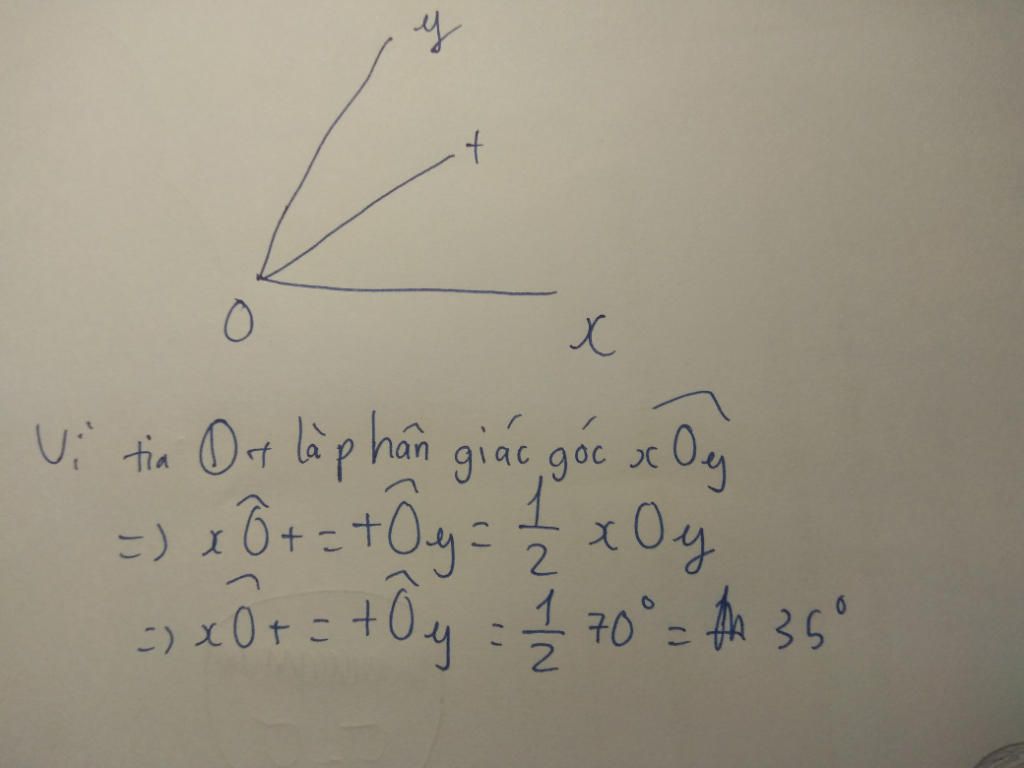 y
t
O
x
Vì tia Ot là phân giác góc xÔy
=) xÔt = tÔy = 1/2 xOy
=) xÔt = tÔy = 1/2 70° = 35°